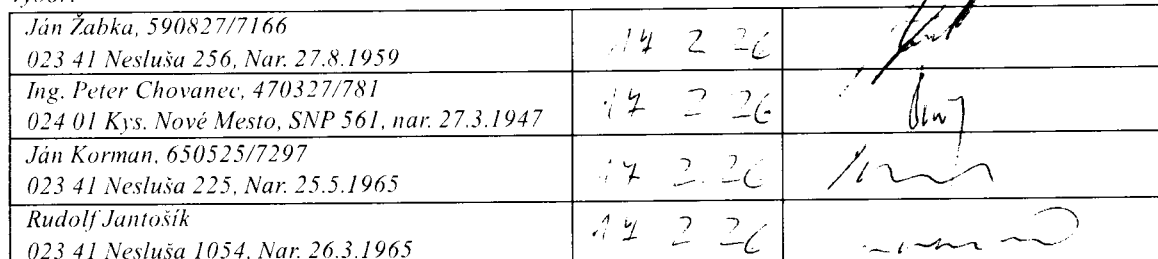 Ján Žabka, 590827/7166
023 41 Nesluša 256, Nar. 27.8.1959
17 2 26
Ing. Peter Chovanec, 470327/781
024 01 Kys. Nové Mesto, SNP 561, nar. 27.3.1947
17 2 26
Ján Korman, 650525/7297
023 41 Nesluša 225, Nar. 25.5.1965
17 2.26
Rudolf Jantošík
023 41 Nesluša 1054, Nar. 26.3.1965
17 2 26